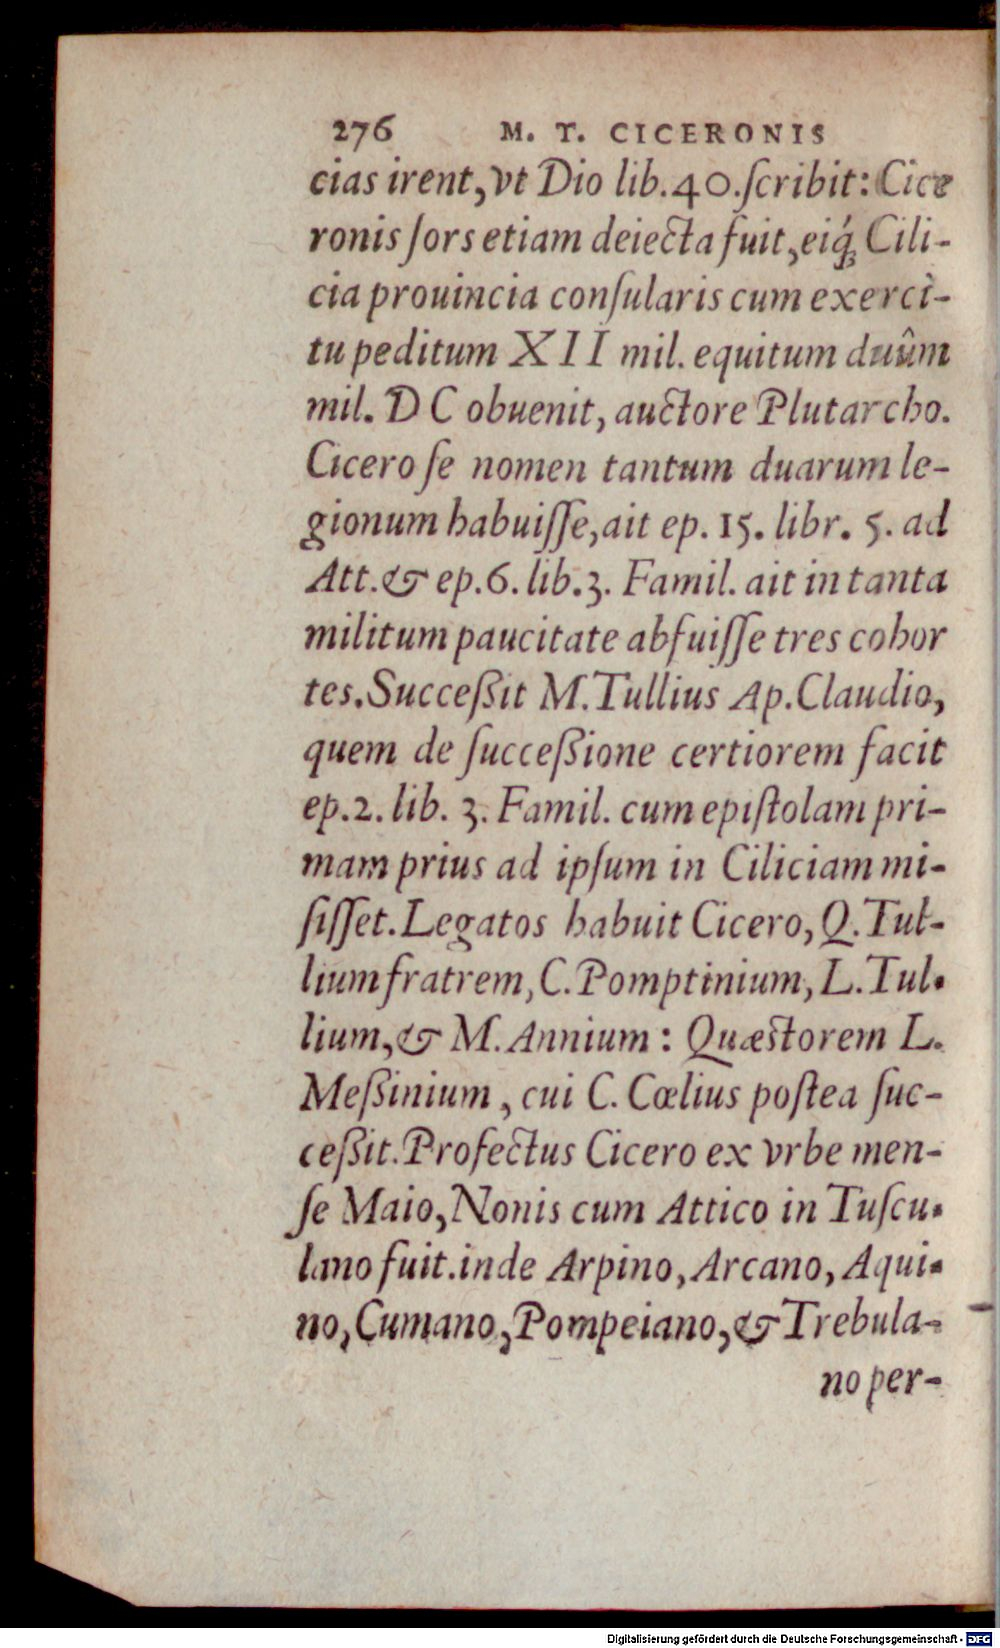 276 M. T. CICERONIS
cias irent, vt Dio lib. 40. ſcribit: Cice
ronis ſors etiam deiecta fuit, eiq́ꝫ Cili-
cia prouincia conſularis cum exerci-
tu peditum XII mil. equitum duûm
mil. DC obuenit, auctore Plutarcho.
Cicero ſe nomen tantum duarum le-
gionum habuiſſe, ait ep. 15. libr. 5. ad
Att. & ep. 6. lib. 3. Famil. ait in tanta
militum paucitate abfuiſſe tres cohor
tes. Succeßit M. Tullius Ap. Claudio,
quem de ſucceßione certiorem facit
ep. 2. lib. 3. Famil. cum epiſtolam pri-
mam prius ad ipſum in Ciliciam mi-
ſiſſet. Legatos habuit Cicero, Q. Tul-
lium fratrem, C. Pomptinium, L. Tul-
lium, & M. Annium: Quæstorem L.
Meßinium, cui C. Cœlius poſtea ſuc-
ceßit. Profectus Cicero ex vrbe men-
ſe Maio, Nonis cum Attico in Tuſcu-
lano fuit. inde Arpino, Arcano, Aqui-
no, Cumano, Pompeiano, & Trebula-
no per-
Digitalisierung gefördert durch die Deutsche Forschungsgemeinschaft - DFG